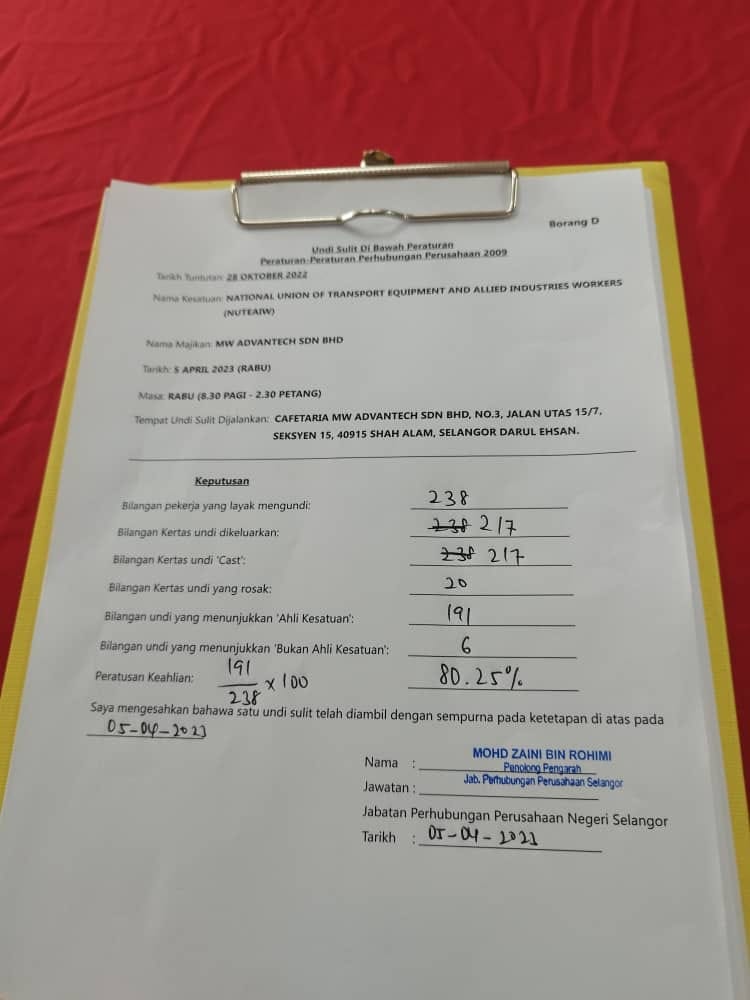 Borang D
Undi Sulit Di Bawah Peraturan
Peraturan-Peraturan Perhubungan Perusahaan 2009
Tarikh Tuntutan: 28 OKTOBER 2022
Nama Kesatuan: NATIONAL UNION OF TRANSPORT EQUIPMENT AND ALLIED INDUSTRIES WORKERS
(NUTEAIW)
Nama Majikan: MW ADVANTECH SDN BHD
Tarikh: 5 APRIL 2023 (RABU)
Masa: RABU (8.30 PAGI - 2.30 PETANG)
Tempat Undi Sulit Dijalankan: CAFETARIA MW ADVANTECH SDN BHD, NO.3, JALAN UTAS 15/7,
SEKSYEN 15, 40915 SHAH ALAM, SELANGOR DARUL EHSAN.
Keputusan
Bilangan pekerja yang layak mengundi: 238
Bilangan Kertas undi dikeluarkan: 238 217
Bilangan Kertas undi 'Cast': 238 217
Bilangan Kertas undi yang rosak: 20
Bilangan undi yang menunjukkan 'Ahli Kesatuan': 191
Bilangan undi yang menunjukkan 'Bukan Ahli Kesatuan': 6
Peratusan Keahlian: 191/238 x 100 80.25%
Saya mengesahkan bahawa satu undi sulit telah diambil dengan sempurna pada ketetapan di atas pada
05-04-2023
Nama : MOHD ZAINI BIN ROHIMI
Penolong Pengarah
Jawatan : Jab. Perhubungan Perusahaan Selangor
Jabatan Perhubungan Perusahaan Negeri Selangor
Tarikh : 05-04-2023